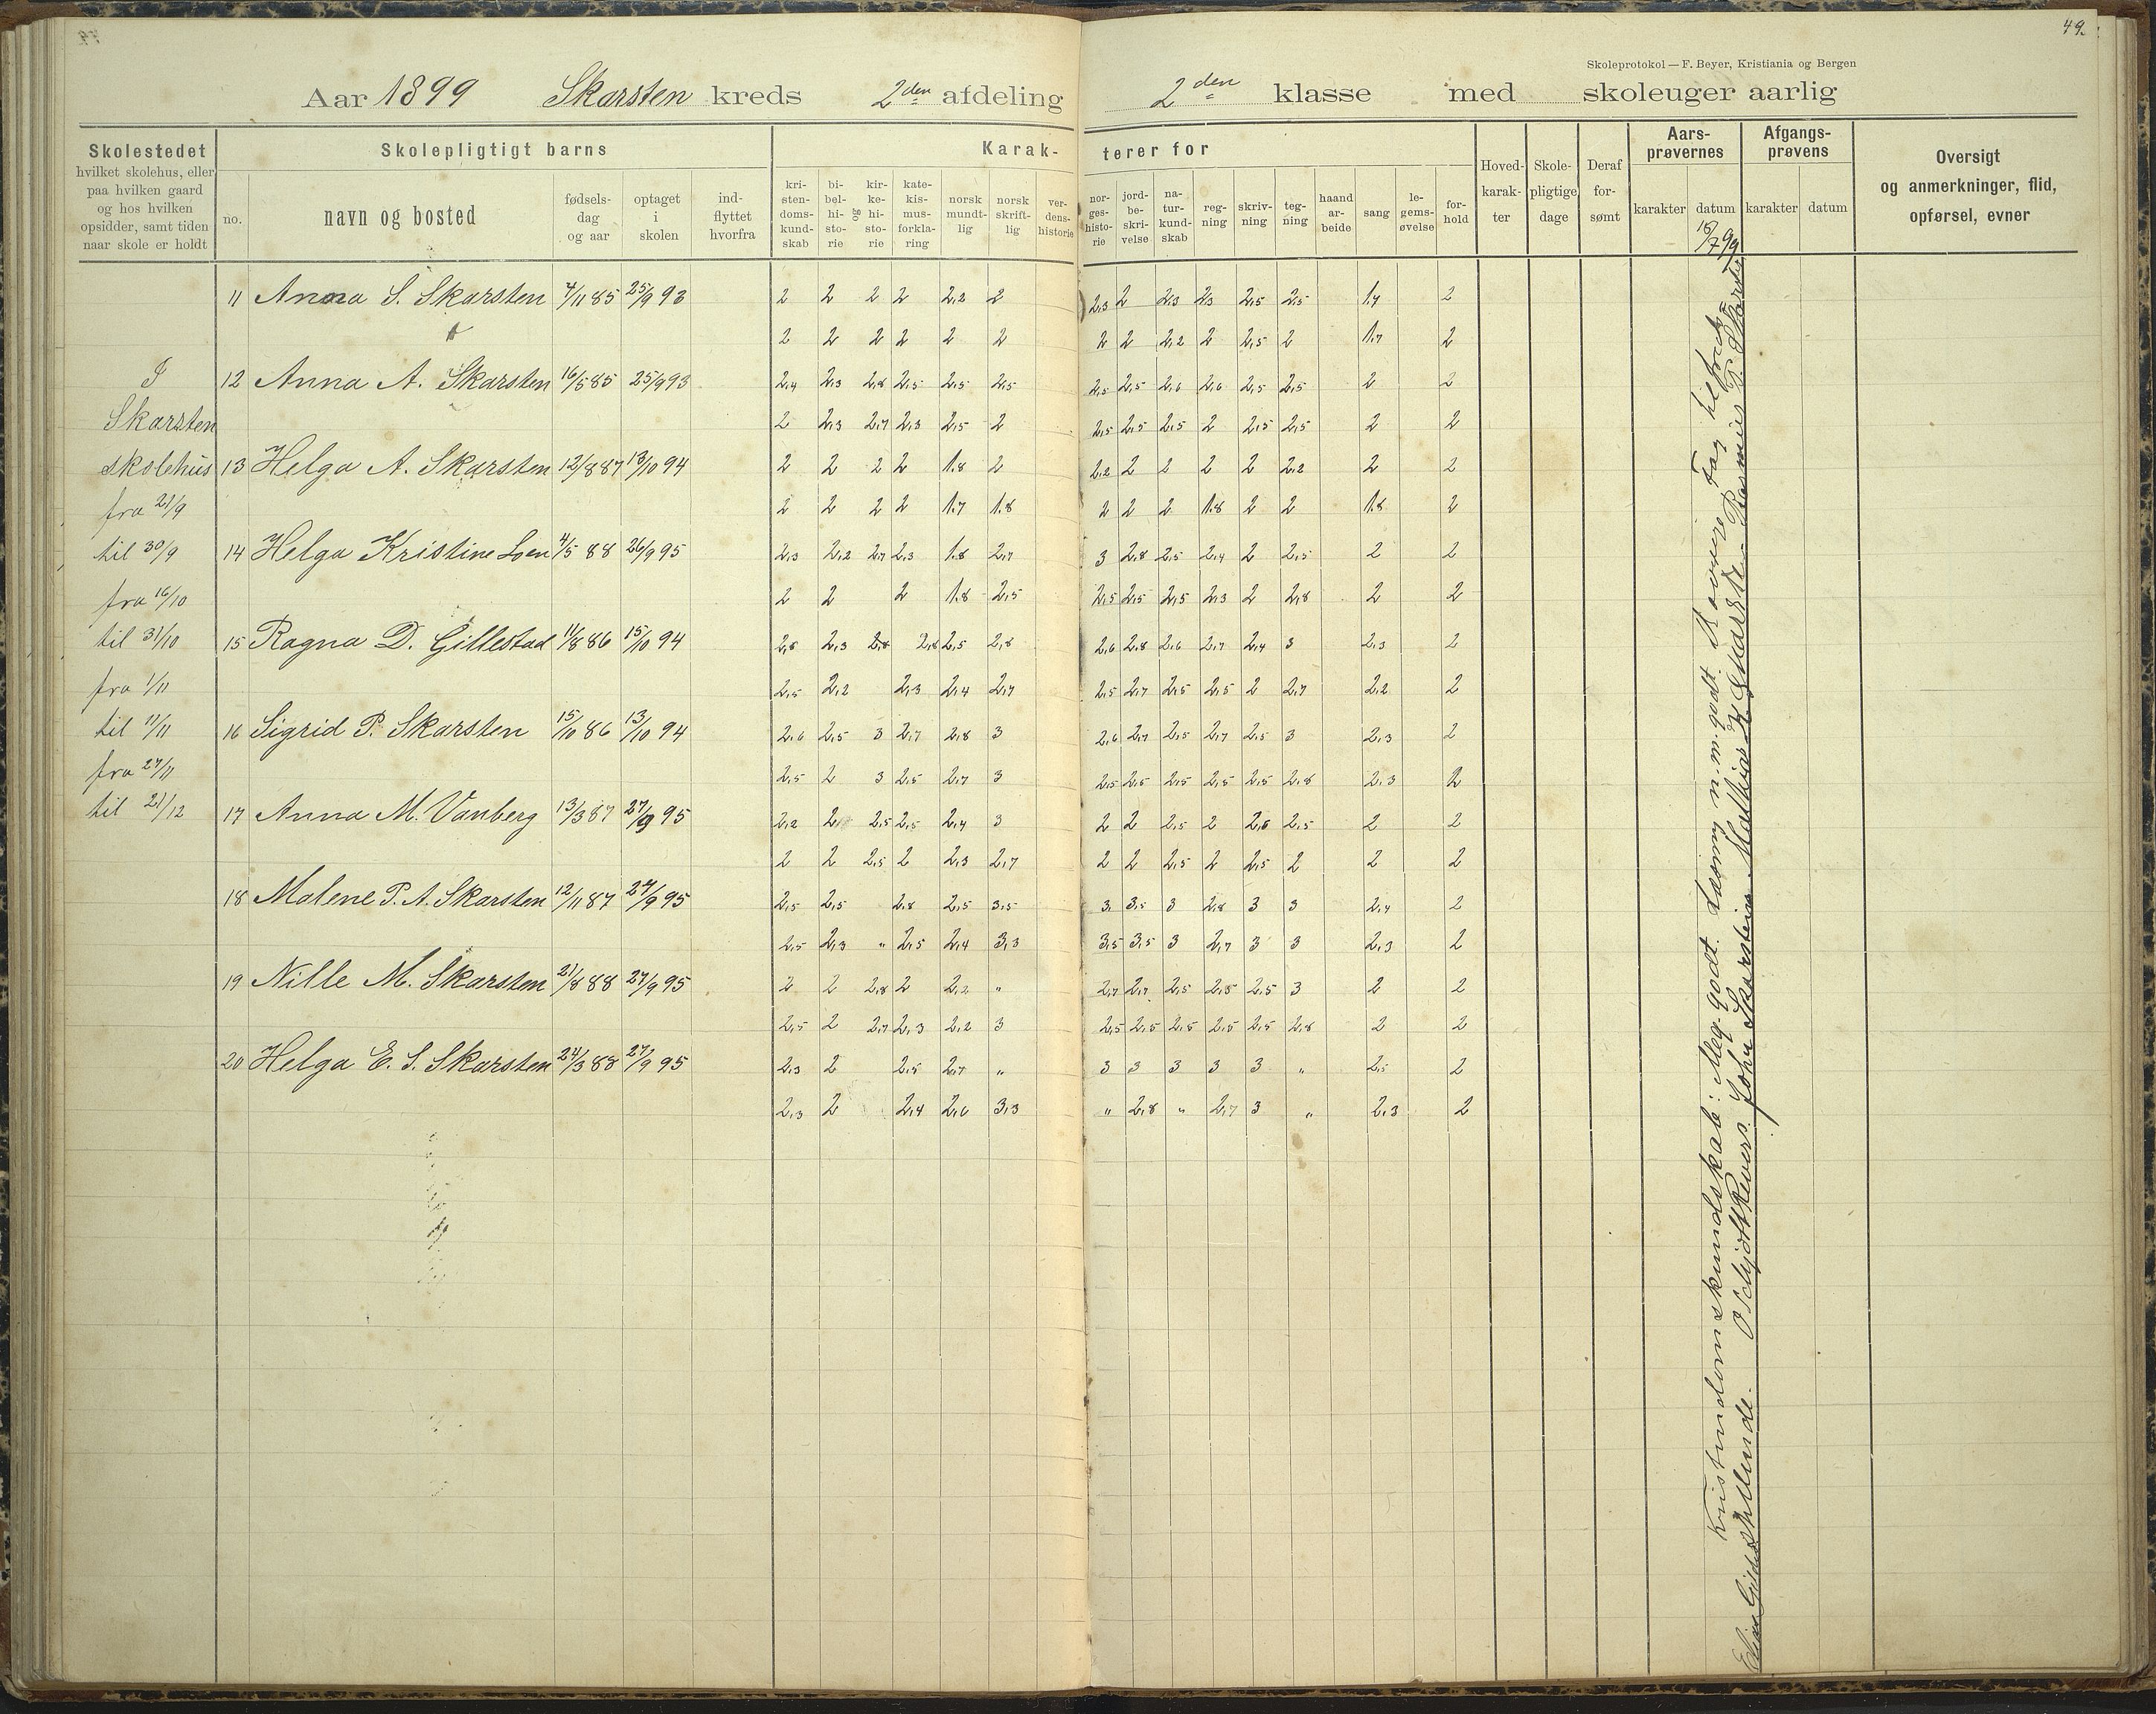 49.
Skoleprotokol — F. Beyer, Kristiania og Bergen
Aar 1899 Skarsten kreds 2den afdeling 2den klasse med skoleuger aarlig
Skolestedet hvilket skolehus, eller paa hvilken gaard og hos hvilken opsidder, samt tiden naar skole er holdt
Skolepligtigt barns
no. navn og bosted fødsels-dag og aar optaget i skolen ind-flyttet hvorfra
Karak-terer for
kri-sten-doms-kund-skab bi-bel-hi-sto-rie og kir-ke-hi-sto-rie kate-kis-mus-forkla-ring norsk mundt-lig norsk skrift-lig ver-dens-historie nor-ges-histo-rie jord-be-skri-velse na-tur-kund-skab reg-ning skriv-ning teg-ning haand ar-beide sang le-gems-øvelse for-hold
Hoved-karak-ter Skole-pligtige dage Deraf for-sømt
Aars-prøvernes karakter datum
Afgangs-prøvens karakter datum
Oversigt og anmerkninger, flid, opførsel, evner
18/7 99
11 Anna S. Skarsten 4/11 85 25/9 93 2 2 2 2 2,2 2 2,3 2 2,3 2,3 2,5 2,5 1,7 2
2 2 2 2 2 2 2 2 2,2 2 2,5 2 1,7 2
I 12 Anna A. Skarsten 16/5 85 25/9 93 2,4 2,3 2,8 2,5 2,5 2,5 2,5 2,5 2,6 2,6 2,5 2,5 2 2
Skarsten 2 2,3 2,7 2,3 2,5 2 2,5 2,5 2,5 2 2,5 2,5 2 2
skolehus 13 Helga A. Skarsten 12/8 87 13/10 94 2 2 2 2 1,8 2 2,2 2 2 2 2 2,2 2 2
fra 21/9 2 2 2 2 1,7 1,8 2 2 2 1,8 2 2 1,8 2
til 30/9 14 Helga Kristine Loen 4/5 88 26/9 95 2,3 2,2 2,7 2,3 1,8 2,7 3 2,8 2,5 2,4 2 2,5 2 2
fra 16/10 2 2 2 1,8 2,5 2,5 2,5 2,5 2,3 2 2,8 2 2
til 31/10 15 Ragna D. Gillestad 11/8 86 15/10 94 2,8 2,3 2,8 2,8 2,5 2,8 2,6 2,8 2,6 2,7 2,4 3 2,3 2
fra 1/11 2,5 2,2 2,3 2,4 2,7 2,5 2,7 2,5 2,5 2 2,7 2,2 2
til 11/11 16 Sigrid P. Skarsten 15/10 86 13/10 94 2,6 2,5 3 2,7 2,8 3 2,6 2,7 2,5 2,7 2,5 3 2,3 2
fra 27/11 2,5 2 3 2,5 2,7 3 2,5 2,5 2,5 2,5 2,5 2,8 2,3 2
til 21/12 17 Anna M. Vanberg 13/3 87 27/9 95 2,2 2 2,5 2,5 2,4 3 2 2 2,5 2 2,6 2,5 2 2
2 2 2,5 2 2,3 2,7 2 2 2,5 2 2,5 2 2 2
18 Malene P. A. Skarsten 12/11 87 27/9 95 2,5 2,5 2,8 2,5 3,5 3 3,5 3 2,8 3 3 2,4 2
2,5 2,3 " 2,5 2,4 3,3 3,5 3,5 3 2,7 3 3 2,3 2
19 Nille M. Skarsten 21/8 88 27/9 95 2 2 2,8 2 2,2 " 2,7 2,7 2,5 2,5 2,5 3 2 2
2,5 2 2,7 2,3 2,2 3 2,5 2,5 2,5 2,5 2,5 2,8 2 2
20 Helga E. S. Skarsten 24/3 88 27/9 95 2,3 2 2,5 2,7 " 3 3 3 3 3 " 2,5 2
2,3 2 2,4 2,6 3,3 " 2,8 " 2,7 3 " 2,3 2
Kristendomskundskab: Meg. godt. Læsning n. m. godt. Øvrige Fag tilfreds-
stillende. O Schjøtt Revers. John Skarstein Mathias K Skarsten Rasmus P. Skarsten